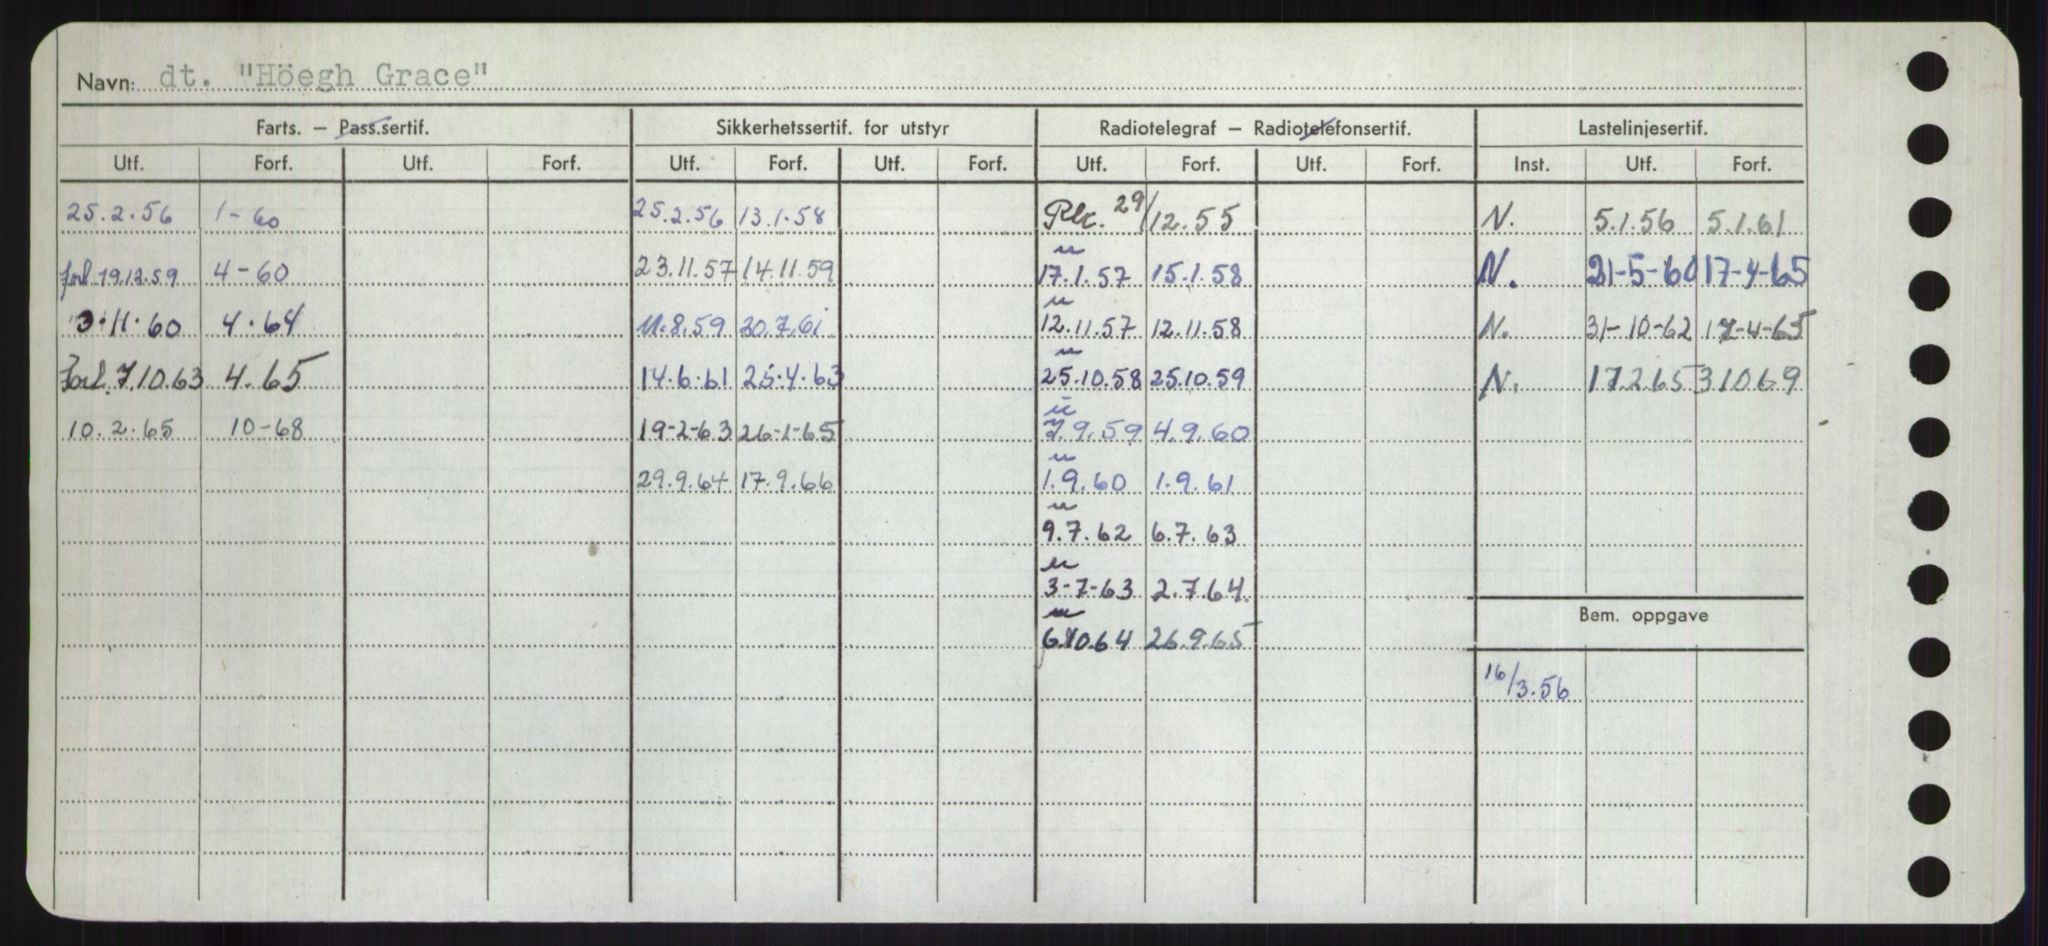 Navn: dt. "Höegh Grace"
Farts. — Pass.sertif. Sikkerhetssertif. for utstyr Radiotelegraf — Radiotelefonsertif. Lastelinjesertif.
Utf. Forf. Utf. Forf. Utf. Forf. Utf. Forf. Utf. Forf. Utf. Forf. Inst. Utf. Forf.
25.2.56 1-60 25.2.56 13.1.58 29/12.55 N. 5.1.56 5.1.61
forl 19.12.59 4-60 23.11.57 14.11.59 17.1.57 15.1.58 N. 21-5-60 17-4-65
3.11.60 4.64 11.8.59 30.7.61 12.11.57 12.11.58 N. 31-10-62 17-4-65
Forl. 7.10.63 4.65 14.6.61 25.4.63 25.10.58 25.10.59 N. 17.2.65 31069
10.2.65 10-68 19-2-63 26-1-65 7.9.59 4.9.60
29.9.64 17.9.66 1.9.60 1.9.61
9.7.62 6.7.63
3-7-63 2.7.64.
6.10.64 26.9.65
Bem. oppgave
16/3.56